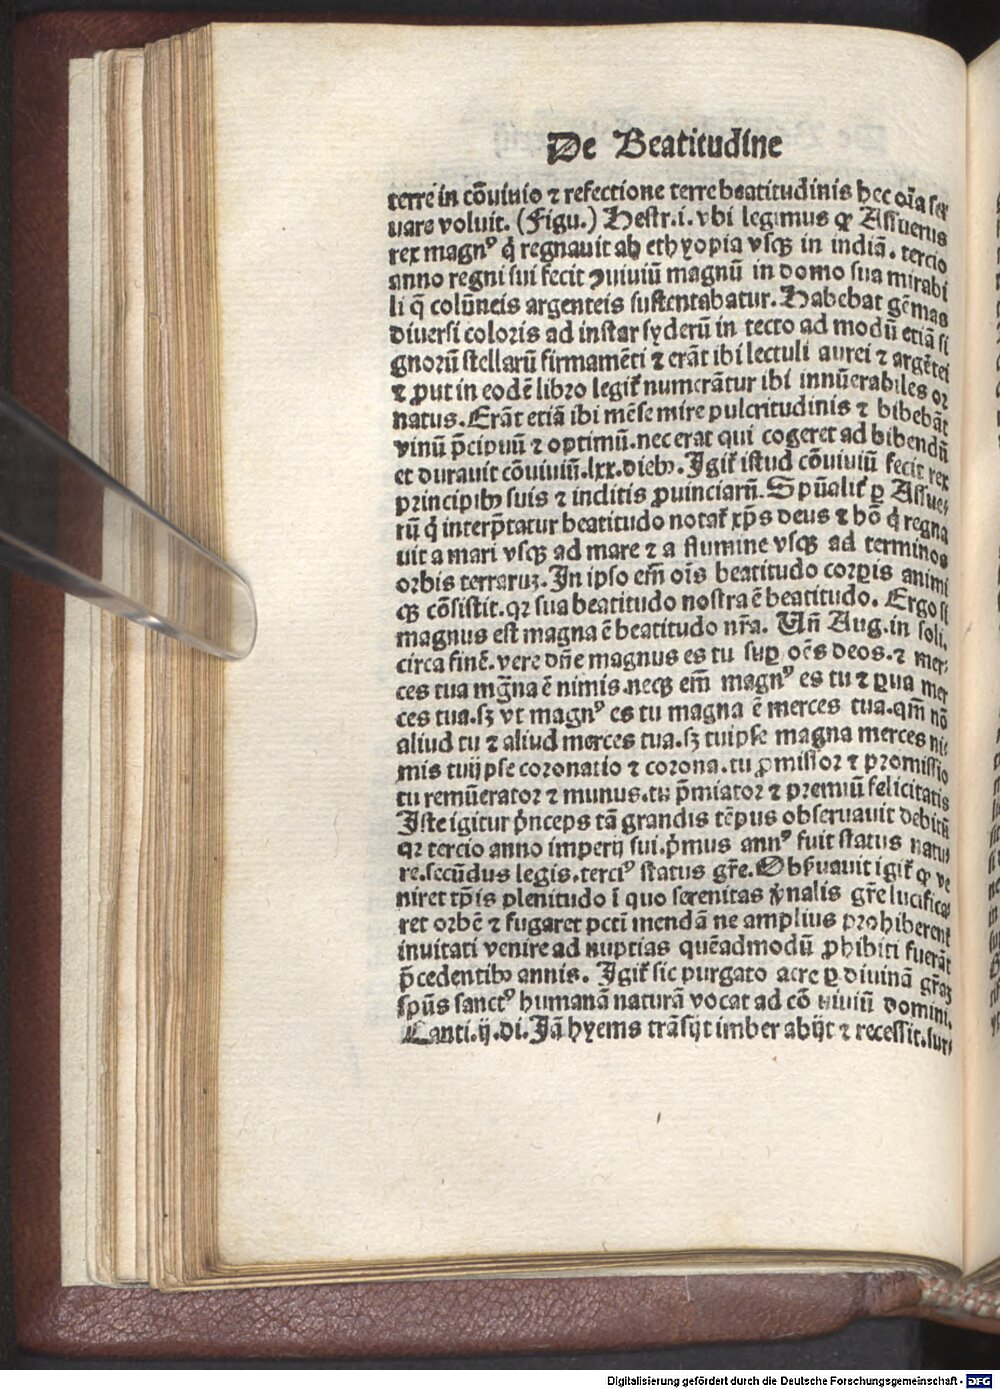 De Beatitudine
terre in cōuiuio ⁊ refectione terre beatitudinis hec oīa ser
uare voluit. (Figu.) Hestr.i. vbi legimus ꝙ Assuerus
rex magnꝰ q̇ regnauit ab ethyopia vsqꝫ in indiā. tercio
anno regni sui fecit ꝯuiuiū magnū in domo sua mirabi
li q̄ colūneis argenteis sustentabatur. Habebat gēmas
diuersi coloris ad instar syderū in tecto ad modū etiā si
gnorū stellarū firmamēti ⁊ erāt ibi lectuli aurei ⁊ argētei
⁊ ꝓut in eodē libro legit̄ numerātur ibi innūerabiles or
natus. Erāt etiā ibi mēse mire pulcritudinis ⁊ bibebāt
vinū p̄cipuū ⁊ optimū. nec erat qui cogeret ad bibendū
et durauit cōuiuiū .lxx. diebꝫ. Igit̄ istud cōuiuiū fecit rex
principibꝫ suis ⁊ inclitis ꝓuinciarū. Spūalit̄ ꝑ Assue-
rū q̇ interp̄tatur beatitudo notat̄ xp̄s deus ⁊ hō q̇ regna
uit a mari vsqꝫ ad mare ⁊ a flumine vsqꝫ ad terminos
orbis terraruꝫ. In ipso em̄ oīs beatitudo corꝑis animi
qꝫ cōsistit. qꝛ sua beatitudo nostra ē beatitudo. Ergo si
magnus est magna ē beatitudo nr̄a. Un̄ Aug. in soli.
circa finē. vere dn̄e magnus es tu suꝑ oēs deos. ⁊ mer-
ces tua mḡna ē nimis. neqꝫ em̄ magnꝰ es tu ⁊ ꝑua mer
ces tua. sꝫ vt magnꝰ es tu magna ē merces tua. qm̄ nō
aliud tu ⁊ aliud merces tua. sꝫ tuipse magna merces ni-
mis tuijpse coronatio ⁊ corona. tu ꝓmissor ⁊ promissio
tu remūerator ⁊ munus. tu p̄miator ⁊ premiū felicitatis
Iste igitur ṗnceps tā grandis tēpus obseruauit debitū
qꝛ tercio anno imperij sui. ṗmus annꝰ fuit status natu-
re. secūdus legis. terciꝰ status gr̄e. Obẜuauit igit̄ ꝙ ve
niret tp̄is plenitudo ī quo serenitas v̇nalis gr̄e lucifica-
ret orbē ⁊ fugaret pctī mendā ne amplius prohiberent̄
inuitati venire ad nuptias quēadmodū ꝓhibiti fuerāt
p̄cedentibꝫ annis. Igit̄ sic purgato aere ꝑ diuinā gr̄aꝫ
spūs sanctꝰ humanā naturā vocat ad cō uiuiū domini.
Canti.ij.di. Iā hyems trāsijt imber abijt ⁊ recessit. sur-
Digitalisierung gefördert durch die Deutsche Forschungsgemeinschaft - DFG